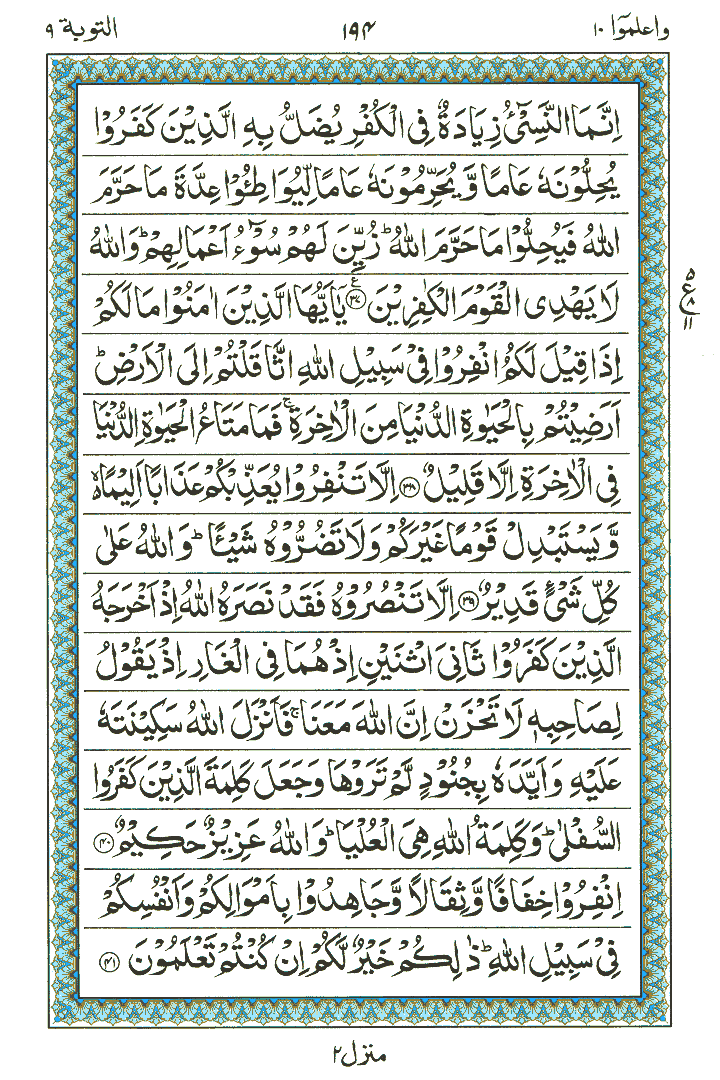 واعلموٓا ١٠ ١٩۴ التوبة ٩
اِنَّمَا النَّسِیْٓءُ زِیَادَةٌ فِی الْكُفْرِ یُضَلُّ بِهِ الَّذِیْنَ كَفَرُوْا
یُحِلُّوْنَهٗ عَامًا وَّ یُحَرِّمُوْنَهٗ عَامًا لِّیُوَاطِـُٔوْا عِدَّةَ مَا حَرَّمَ
اللّٰهُ فَیُحِلُّوْا مَا حَرَّمَ اللّٰهُ ؕ زُیِّنَ لَهُمْ سُوْٓءُ اَعْمَالِهِمْ ؕ وَاللّٰهُ
لَا یَهْدِی الْقَوْمَ الْكٰفِرِیْنَ ﴿۳۷﴾ ع یٰۤاَیُّهَا الَّذِیْنَ اٰمَنُوْا مَا لَكُمْ
۵ ع ۸ ۱۱
اِذَا قِیْلَ لَكُمُ انْفِرُوْا فِیْ سَبِیْلِ اللّٰهِ اثَّاقَلْتُمْ اِلَی الْاَرْضِ ؕ
اَرَضِیْتُمْ بِالْحَیٰوةِ الدُّنْیَا مِنَ الْاٰخِرَةِ ۚ فَمَا مَتَاعُ الْحَیٰوةِ الدُّنْیَا
فِی الْاٰخِرَةِ اِلَّا قَلِیْلٌ ﴿۳۸﴾ اِلَّا تَنْفِرُوْا یُعَذِّبْكُمْ عَذَابًا اَلِیْمًا ۙ۬
وَّ یَسْتَبْدِلْ قَوْمًا غَیْرَكُمْ وَلَا تَضُرُّوْهُ شَیْـًٔا ؕ وَاللّٰهُ عَلٰی
كُلِّ شَیْءٍ قَدِیْرٌ ﴿۳۹﴾ اِلَّا تَنْصُرُوْهُ فَقَدْ نَصَرَهُ اللّٰهُ اِذْ اَخْرَجَهُ
الَّذِیْنَ كَفَرُوْا ثَانِیَ اثْنَیْنِ اِذْ هُمَا فِی الْغَارِ اِذْ یَقُوْلُ
لِصَاحِبِهٖ لَا تَحْزَنْ اِنَّ اللّٰهَ مَعَنَا ۚ فَاَنْزَلَ اللّٰهُ سَكِیْنَتَهٗ
عَلَیْهِ وَ اَیَّدَهٗ بِجُنُوْدٍ لَّمْ تَرَوْهَا وَجَعَلَ كَلِمَةَ الَّذِیْنَ كَفَرُوا
السُّفْلٰی ؕ وَ كَلِمَةُ اللّٰهِ هِیَ الْعُلْیَا ؕ وَاللّٰهُ عَزِیْزٌ حَكِیْمٌ ﴿۴۰﴾
اِنْفِرُوْا خِفَافًا وَّ ثِقَالًا وَّ جَاهِدُوْا بِاَمْوَالِكُمْ وَ اَنْفُسِكُمْ
فِیْ سَبِیْلِ اللّٰهِ ؕ ذٰلِكُمْ خَیْرٌ لَّكُمْ اِنْ كُنْتُمْ تَعْلَمُوْنَ ﴿۴۱﴾
منزل ۲